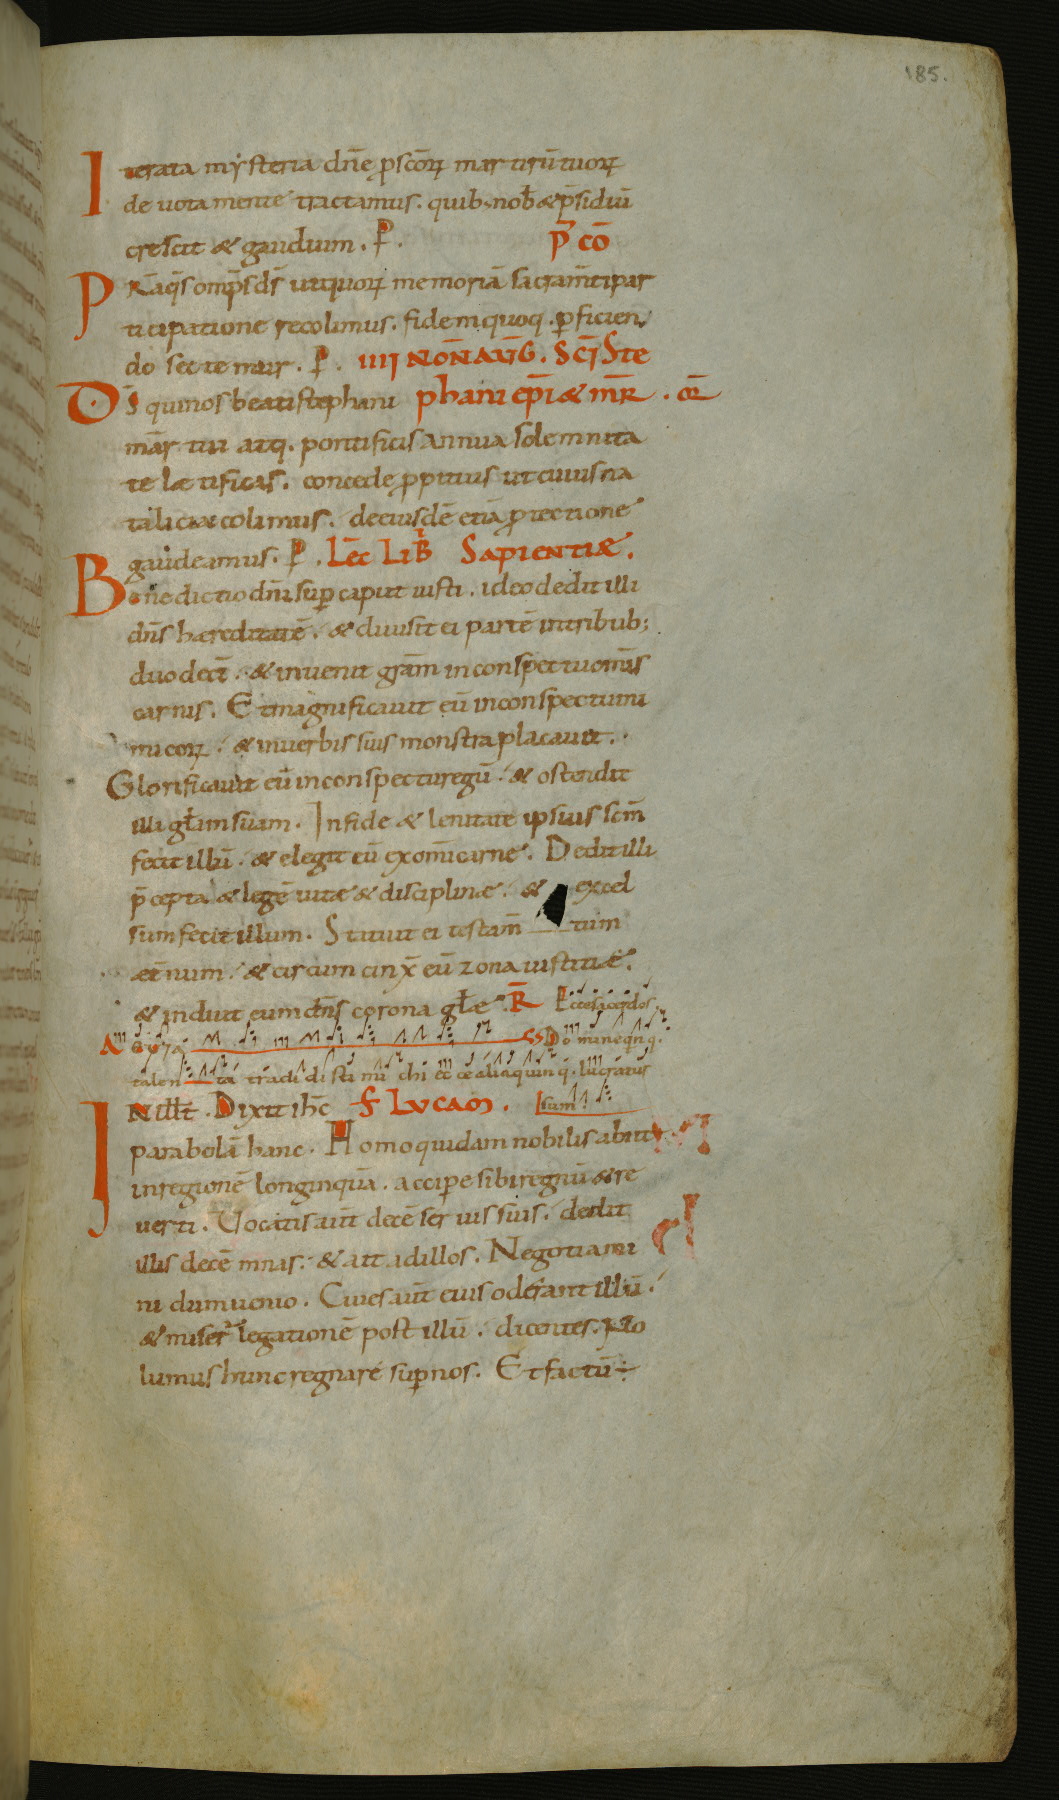 185.
Iterata mysteria dñe p̱ scõꝝ martirũ tuoꝝ
deuota mente tractamus. quib; nob̃ & p̃sidiũ
crescit & gaudium. P̱. P̱ CÕ
P r̃ aq̃s omp̃s d̃s ut quoꝝ memoriã sacram̃ti par
ticipatione recolimus. fidem quoq. p̱ficien
do sectemur. P̱. IIII NOÑ AUG̃. SC̃I Ste
D s̃ qui nos beati stephani phani ep̃i & m̃r. or̃
mar̃ tiri atq. pontificis annua solemnita
te lætificas. concede p̱pitius ut cuius na
talicia colimus. de eiusdẽ etiã p̱tectione
gaudeamus. P̱. Lẽc LIB̃ SAPIENTIÆ.
Benedictio dñi sup̱ caput iusti. ideo dedit illi
dñs hæreditatẽ. & diuisit ei partẽ in tribub;
duodecĩ. & inuenit gr̃am in conspectu om̃is
carnis. Et magnificauit eũ in conspectu ini
micoꝝ. & in uerbis suis monstra placauit.
Glorificauit eũ in conspectu regũ. & ostendit
illi gl̃am suam. In fide & lenitate ipsius sc̃m
fecit illũ. & elegit eũ ex om̃i carne. Dedit illi
p̃cepta & legẽ uitæ & disciplinæ. & excel
sum fecit illum. Statuit ei testam̃ tum
æt̃num. & circumcinx̃ eũ zona iustitiæ.
& induit eum dñs corona gl̃æ. R̃ Ecce sacerdos.
A euia SS Domine qñq.
talen ta tradidisti mi chi ecce alia quinq. lucratus
IN ill̃ t̃. Dixit ih̃c S̃ LUCAM. sum
parabolã hanc. Homo quidam nobilis abiit
in regionẽ longinquã. accipe sibi regnũ & re
uerti. Vocatis aut̃ decẽ seruis suis. dedit
illis decẽ mnas. & ait ad illos. Negotiami
ni dum uenio. Ciues aut̃ eius oderant illũ.
& miser̃ legationẽ post illũ. dicentes. No
lumus hunc regnare sup̱ nos. Et factũ ÷